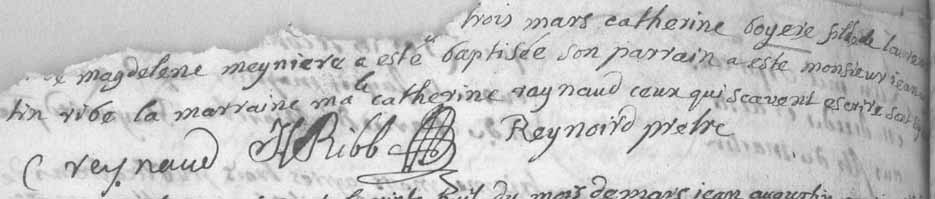 trois mars catherine boyere fille de laure
magdelene meyniere a esté baptisée son parrain a esté monsieur jean
tin ribe la marraine ma le catherine raynaud ceux qui scavent escrire sont
C reynaud H Ribb Reynoird pretre
du mois de mars jean augustin